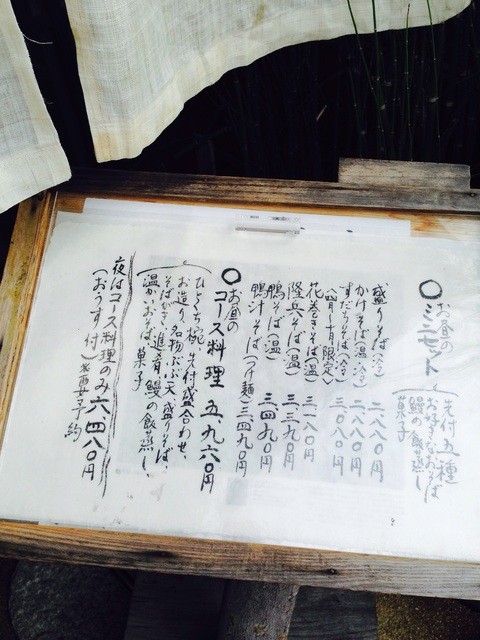 ○お昼のミニセット
先付五種
鰻の飯蒸し
菓子
盛りそば(冷) 二、八八〇円
かけそば(温・冷) 二、八八〇円
すだちそば(冷) 三、〇八〇円
〈四月〜十月限定〉
花巻きそば(温) 三、一八〇円
隆兵そば(温) 三、三九〇円
鴨そば(温) 三、四九〇円
鴨汁そば(つけ麺) 三、四九〇円
○お昼のコース料理 五、九六〇円
ひとくち椀、先付盛合わせ、
お造り、名物 天、盛りそば、
そばがき、進肴、鰻の飯蒸し、
温かいおそば、菓子
夜はコース料理のみ六、四八〇円
(おうす付) ※要予約